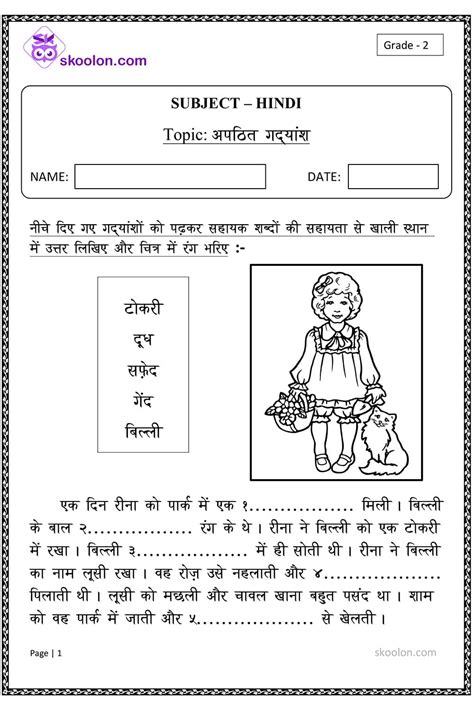 SK
skoolon.com
Grade - 2
SUBJECT – HINDI
Topic: अपठित गद्यांश
NAME:
DATE:
नीचे दिए गए गद्यांशों को पढ़कर सहायक शब्दों की सहायता से खाली स्थान
में उत्तर लिखिए और चित्र में रंग भरिए :-
टोकरी
दूध
सफ़ेद
गेंद
बिल्ली
एक दिन रीना को पार्क में एक १................ मिली । बिल्ली
के बाल २................ रंग के थे । रीना ने बिल्ली को एक टोकरी
में रखा । बिल्ली ३................. में ही सोती थी । रीना ने बिल्ली
का नाम लूसी रखा । वह रोज़ उसे नहलाती और ४.................
पिलाती थी । लूसी को मछली और चावल खाना बहुत पसंद था । शाम
को वह पार्क में जाती और ५.................. से खेलती ।
Page | 1
skoolon.com